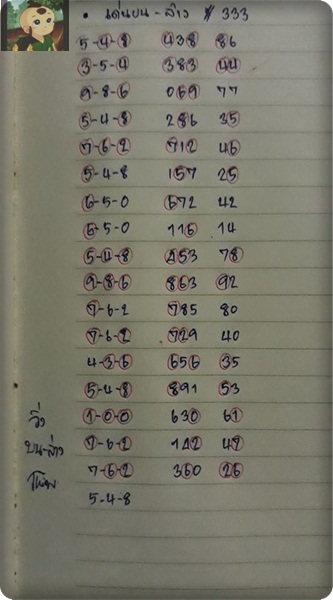 • เด่นบน - ล่าง # 333
5-4-8 438 86
3-5-4 383 44
9-8-6 069 77
5-4-8 286 35
7-6-2 712 46
5-4-8 157 25
6-5-0 572 42
6-5-0 116 14
5-4-8 453 78
9-8-6 863 92
7-6-2 785 80
7-6-2 729 40
4-3-6 656 35
5-4-8 891 53
1-0-0 630 61
7-6-2 142 42
7-6-2 360 26
5-4-8
วิ่ง
บน-ล่าง